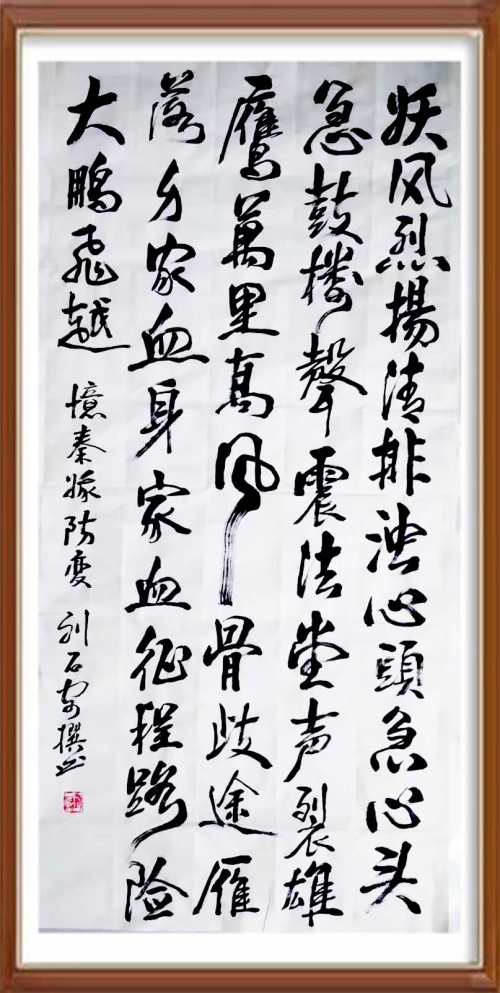 妖风烈揚清排浊心頭急心头
急鼓楼聲震法堂声裂雄
鷹萬里高风骨歧途雁
落家血身家血征程路险
大鵬飛越
憶秦娥防變 刘石撰书